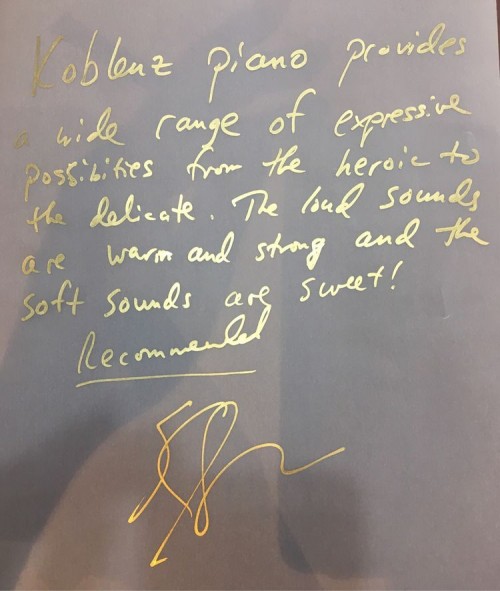 Koblenz piano provides
a wide range of expressive
possibilities from the heroic to
the delicate. The loud sounds
are warm and strong and the
soft sounds are sweet!
Recommended